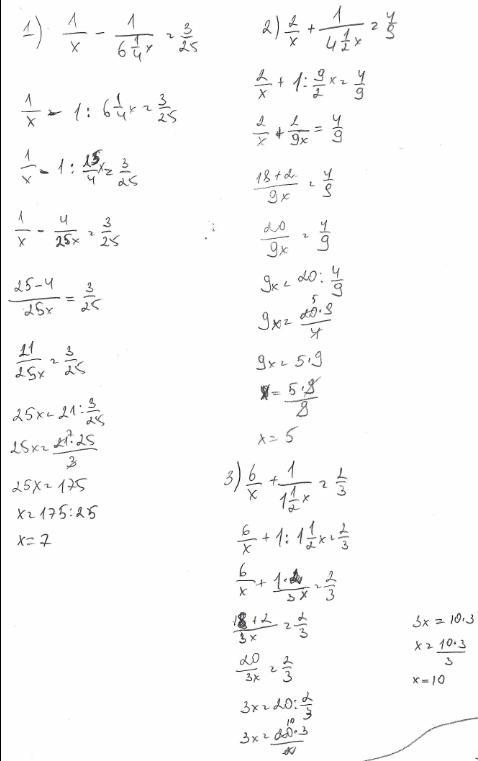 1) 1/x - 1/(6 1/4 x) = 3/25
1/x - 1 : 6 1/4 x = 3/25
1/x - 1 : 25/4 x = 3/25
1/x - 4/25x = 3/25
(25-4)/25x = 3/25
21/25x = 3/25
25x = 21 : 3/25
25x = (21·25)/3
25x = 175
x = 175 : 25
x = 7
2) 2/x + 1/(4 1/2 x) = 4/9
2/x + 1 : 9/2 x = 4/9
2/x + 2/9x = 4/9
(18+2)/9x = 4/9
20/9x = 4/9
9x = 20 : 4/9
9x = (20·9)/4
9x = 5·9
x = (5·9)/9
x = 5
3) 6/x + 1/(1 1/2 x) = 2/3
6/x + 1 : 1 1/2 x = 2/3
6/x + (1·2)/3x = 2/3
(18+2)/3x = 2/3
20/3x = 2/3
3x = 20 : 2/3
3x = (20·3)/2
3x = 10·3
x = (10·3)/3
x = 10